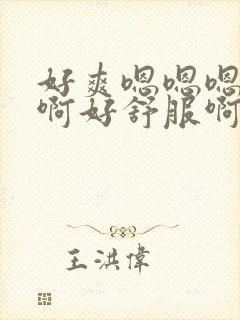 好爽嗯嗯嗯
啊好舒服啊
王洪偉